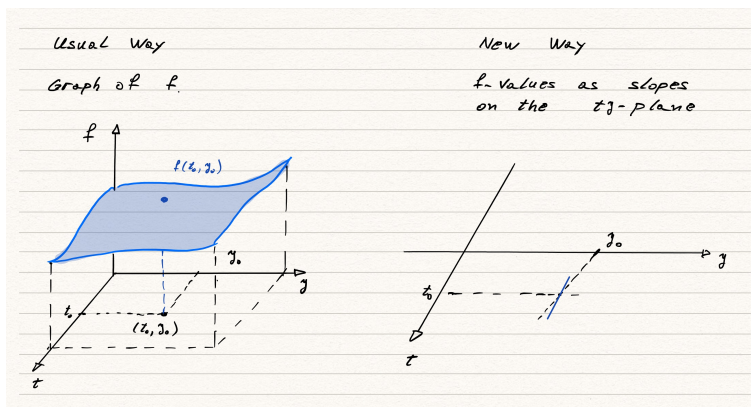 Usual Way
Graph of f.
f
f(t₀, y₀)
y₀
y
t₀
(t₀, y₀)
t
New Way
f-values as slopes
on the ty-plane
y₀
y
t₀
t